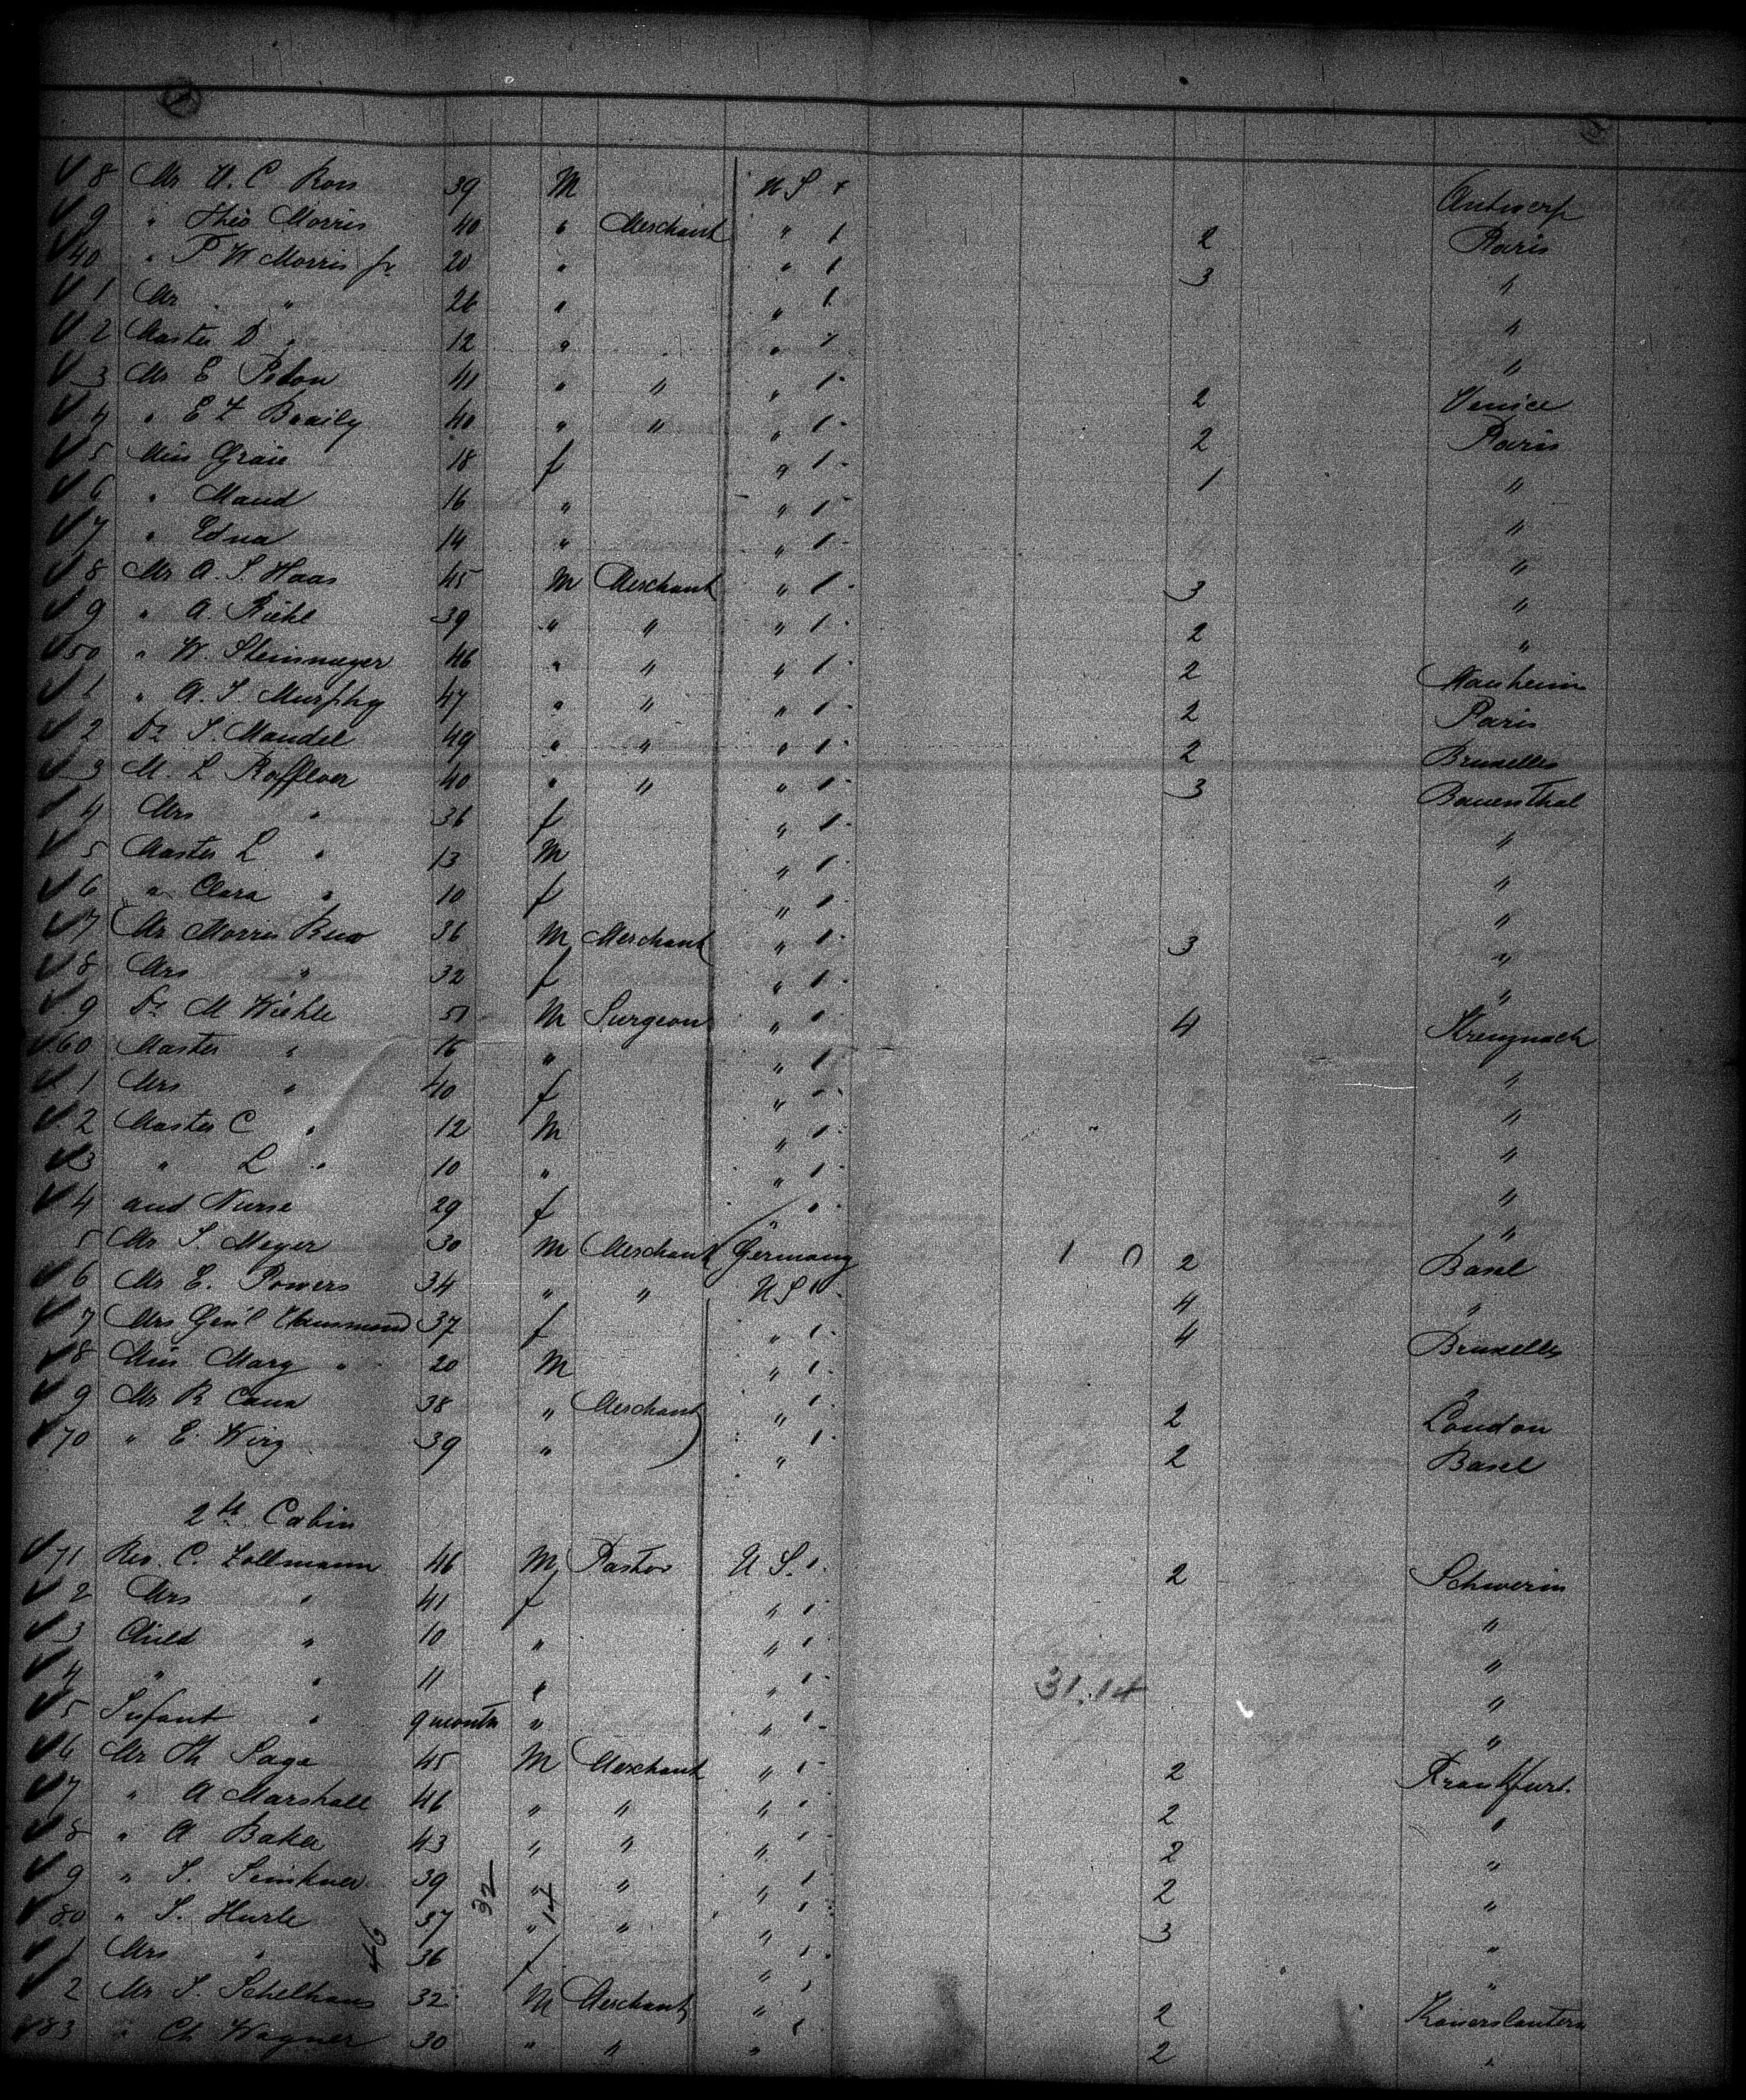 8 Mr H. C Ross 39 M U S 1 Antwerp
9 " Theo Morris 40 " Merchant " 1 2 Paris
40 " T W Morris jr 20 " " 1 3 "
1 Mr " 26 " " 1 "
2 Master D " 12 " " 1 "
3 Mr E Peton 41 " " " 1 2 Venice
4 " E L Braily 40 " " " 1 2 Paris
5 Miss Graie 18 f " 1 1 "
6 " Maud 16 " " 1 "
7 " Edna 14 " " 1 "
8 Mr A. S. Haas 45 M Merchant " 1 3 "
9 " A. Riehl 39 " " " 1 2 "
50 " W. Steinmeyer 46 " " " 1 2 Manheim
1 " A. S. Murphy 47 " " " 1 2 Paris
2 Dr S. Mandel 49 " " " 1 2 Bruxelles
3 M. L Raffloer 40 " " " 1 3 Bauenthal
4 Mrs " 36 f " 1 "
5 Master L " 13 M " 1 "
6 " Clara " 10 f " 1 "
7 Mr Morris 36 M Merchant " 1 3 "
8 Mrs " 32 f " 1 "
9 Dr M Wiehle 51 M Surgeon " 1 4 Kreuznach
60 Master " 16 " " 1 "
1 Mrs " 40 f " 1 "
2 Master C " 12 M " 1 "
3 " L " 10 " " 1 "
4 and Nurse 29 f " 1 "
5 Mr S. Meyer 30 M Merchant Germany 1 0 2 Basel
6 Mr E. Powers 34 " " U S 1 4 "
7 Mrs Gen'l Hammond 37 f " 1 4 Bruxelles
8 Miss Mary " 20 M " 1 "
9 Mr R Cann 38 " Merchant " 1 2 London
70 " E. Wirz 39 " " 1 2 Basel
2te Cabin
71 Rev. C. Zollmann 46 M Pastor U S. 1 2 Schwerin
2 Mrs " 41 f " 1 "
3 Child " 10 " " 1 "
4 " " 11 " " 1 31.14 "
5 Infant " 9 months " " 1 "
6 Mr Th Sage 45 M Merchant " 1 2 Frankfurt.
7 " A Marshall 46 " " " 1 2 "
8 " A Baker 43 " " " 1 2 "
9 " S. 39 " " " 1 2 "
80 " S. Hurle 37 " " " 1 3 "
1 Mrs " 36 f " 1 "
46 32 14
2 Mr S. Schelhaus 32 M Merchant " 1 2 Kaiserslautern
83 " Ch Wagner 30 " " " 1 2 "